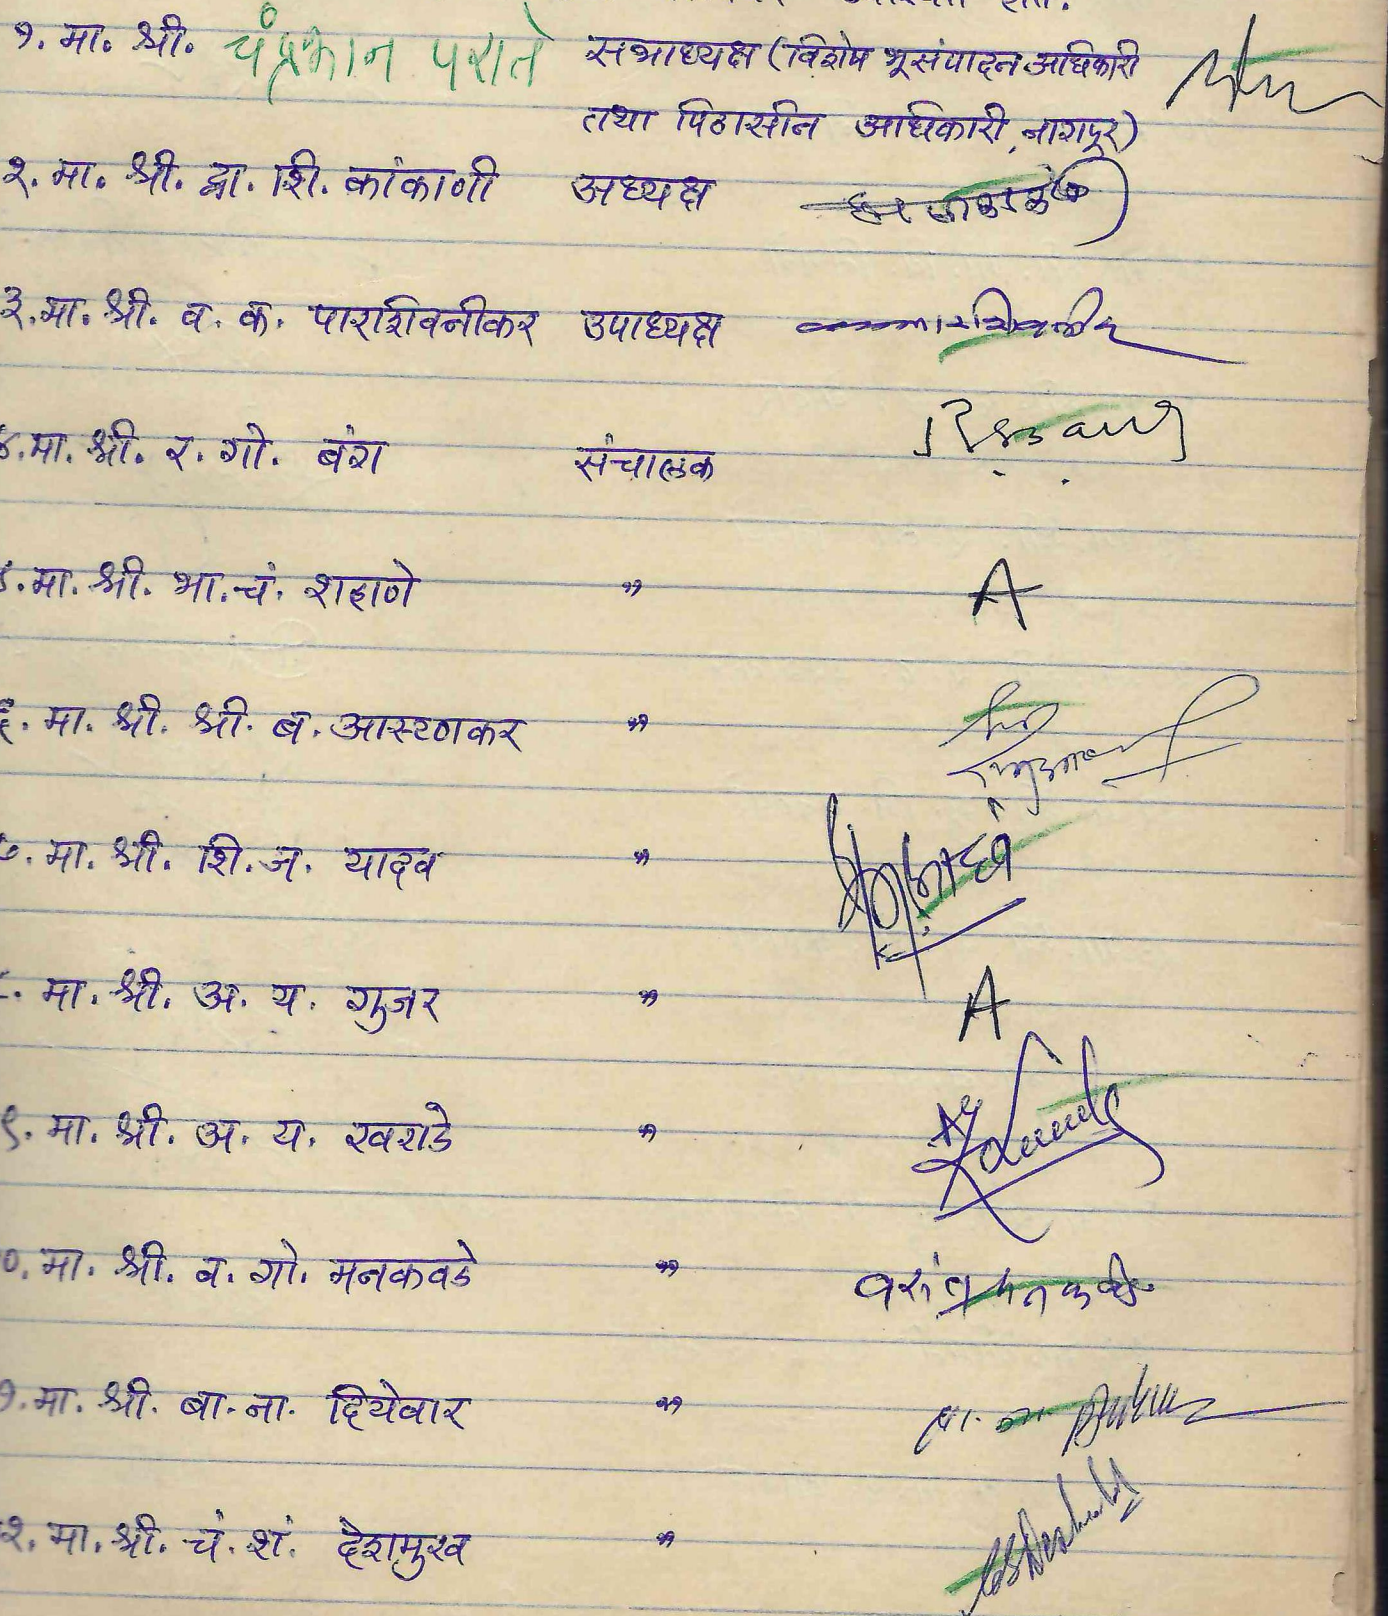 १. मा. श्री. चंद्रकान पराते सभाध्यक्ष (विशेष भूसंपादन अधिकारी
तथा पिठासीन अधिकारी, नागपूर)
२. मा. श्री. द्वा. शि. कांकाणी अध्यक्ष
३. मा. श्री. व. क. पाराशिवनीकर उपाध्यक्ष
४. मा. श्री. र. गो. बंग संचालक
५. मा. श्री. भा. चं. शहाणे " A
६. मा. श्री. श्री. ब. आस्टणकर "
७. मा. श्री. शि. ज. यादव "
८. मा. श्री. अ. य. गुजर " A
९. मा. श्री. अ. य. खराडे "
०. मा. श्री. व. गो. मनकवडे "
१. मा. श्री. बा. ना. दियेवार "
२. मा. श्री. चं. शं. देशमुख "